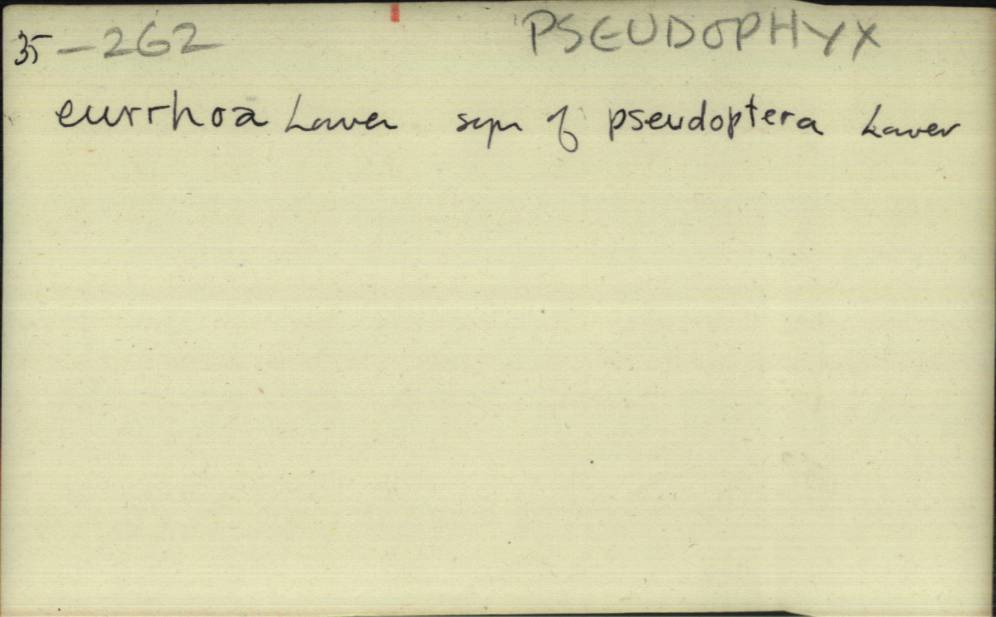 35-262 PSEUDOPHYX
eurrhoa Lower syn of pseudoptera Lower